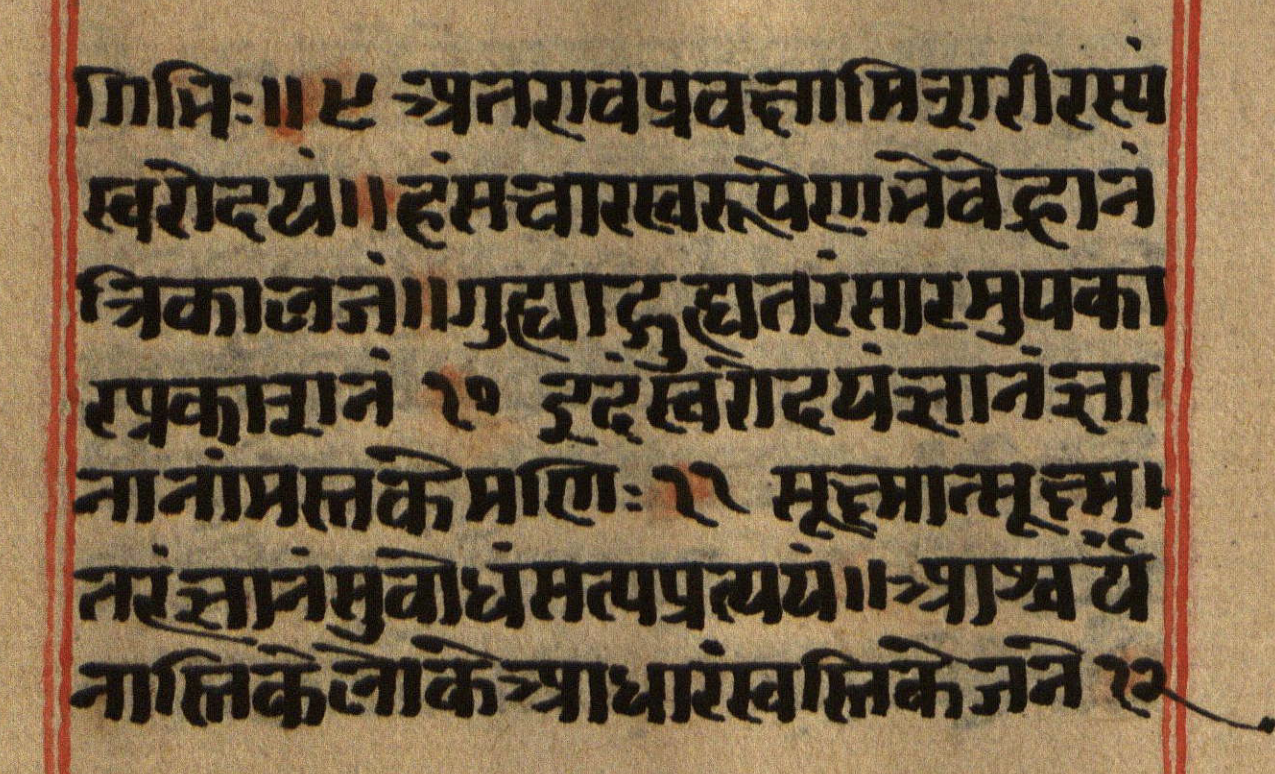 गिभिः॥९ अतएवप्रवक्षामिशरीरस्यं
स्वरोदयं॥हंसचाररूस्वरूपेणभवेद्ज्ञानं
त्रिकालजं॥गुह्याद्गुह्यतरंसारमुपका
रप्रकाशनं १० इदंस्वरोदयंज्ञानंज्ञा
नानांमस्तकेमणिः ११ सूक्ष्मात्सूक्ष्म।
तरंज्ञानंसुवोधंसत्यप्रत्ययं॥आश्चर्यं
नास्तिकेलोकेआधारंस्वस्तिकेजने १२